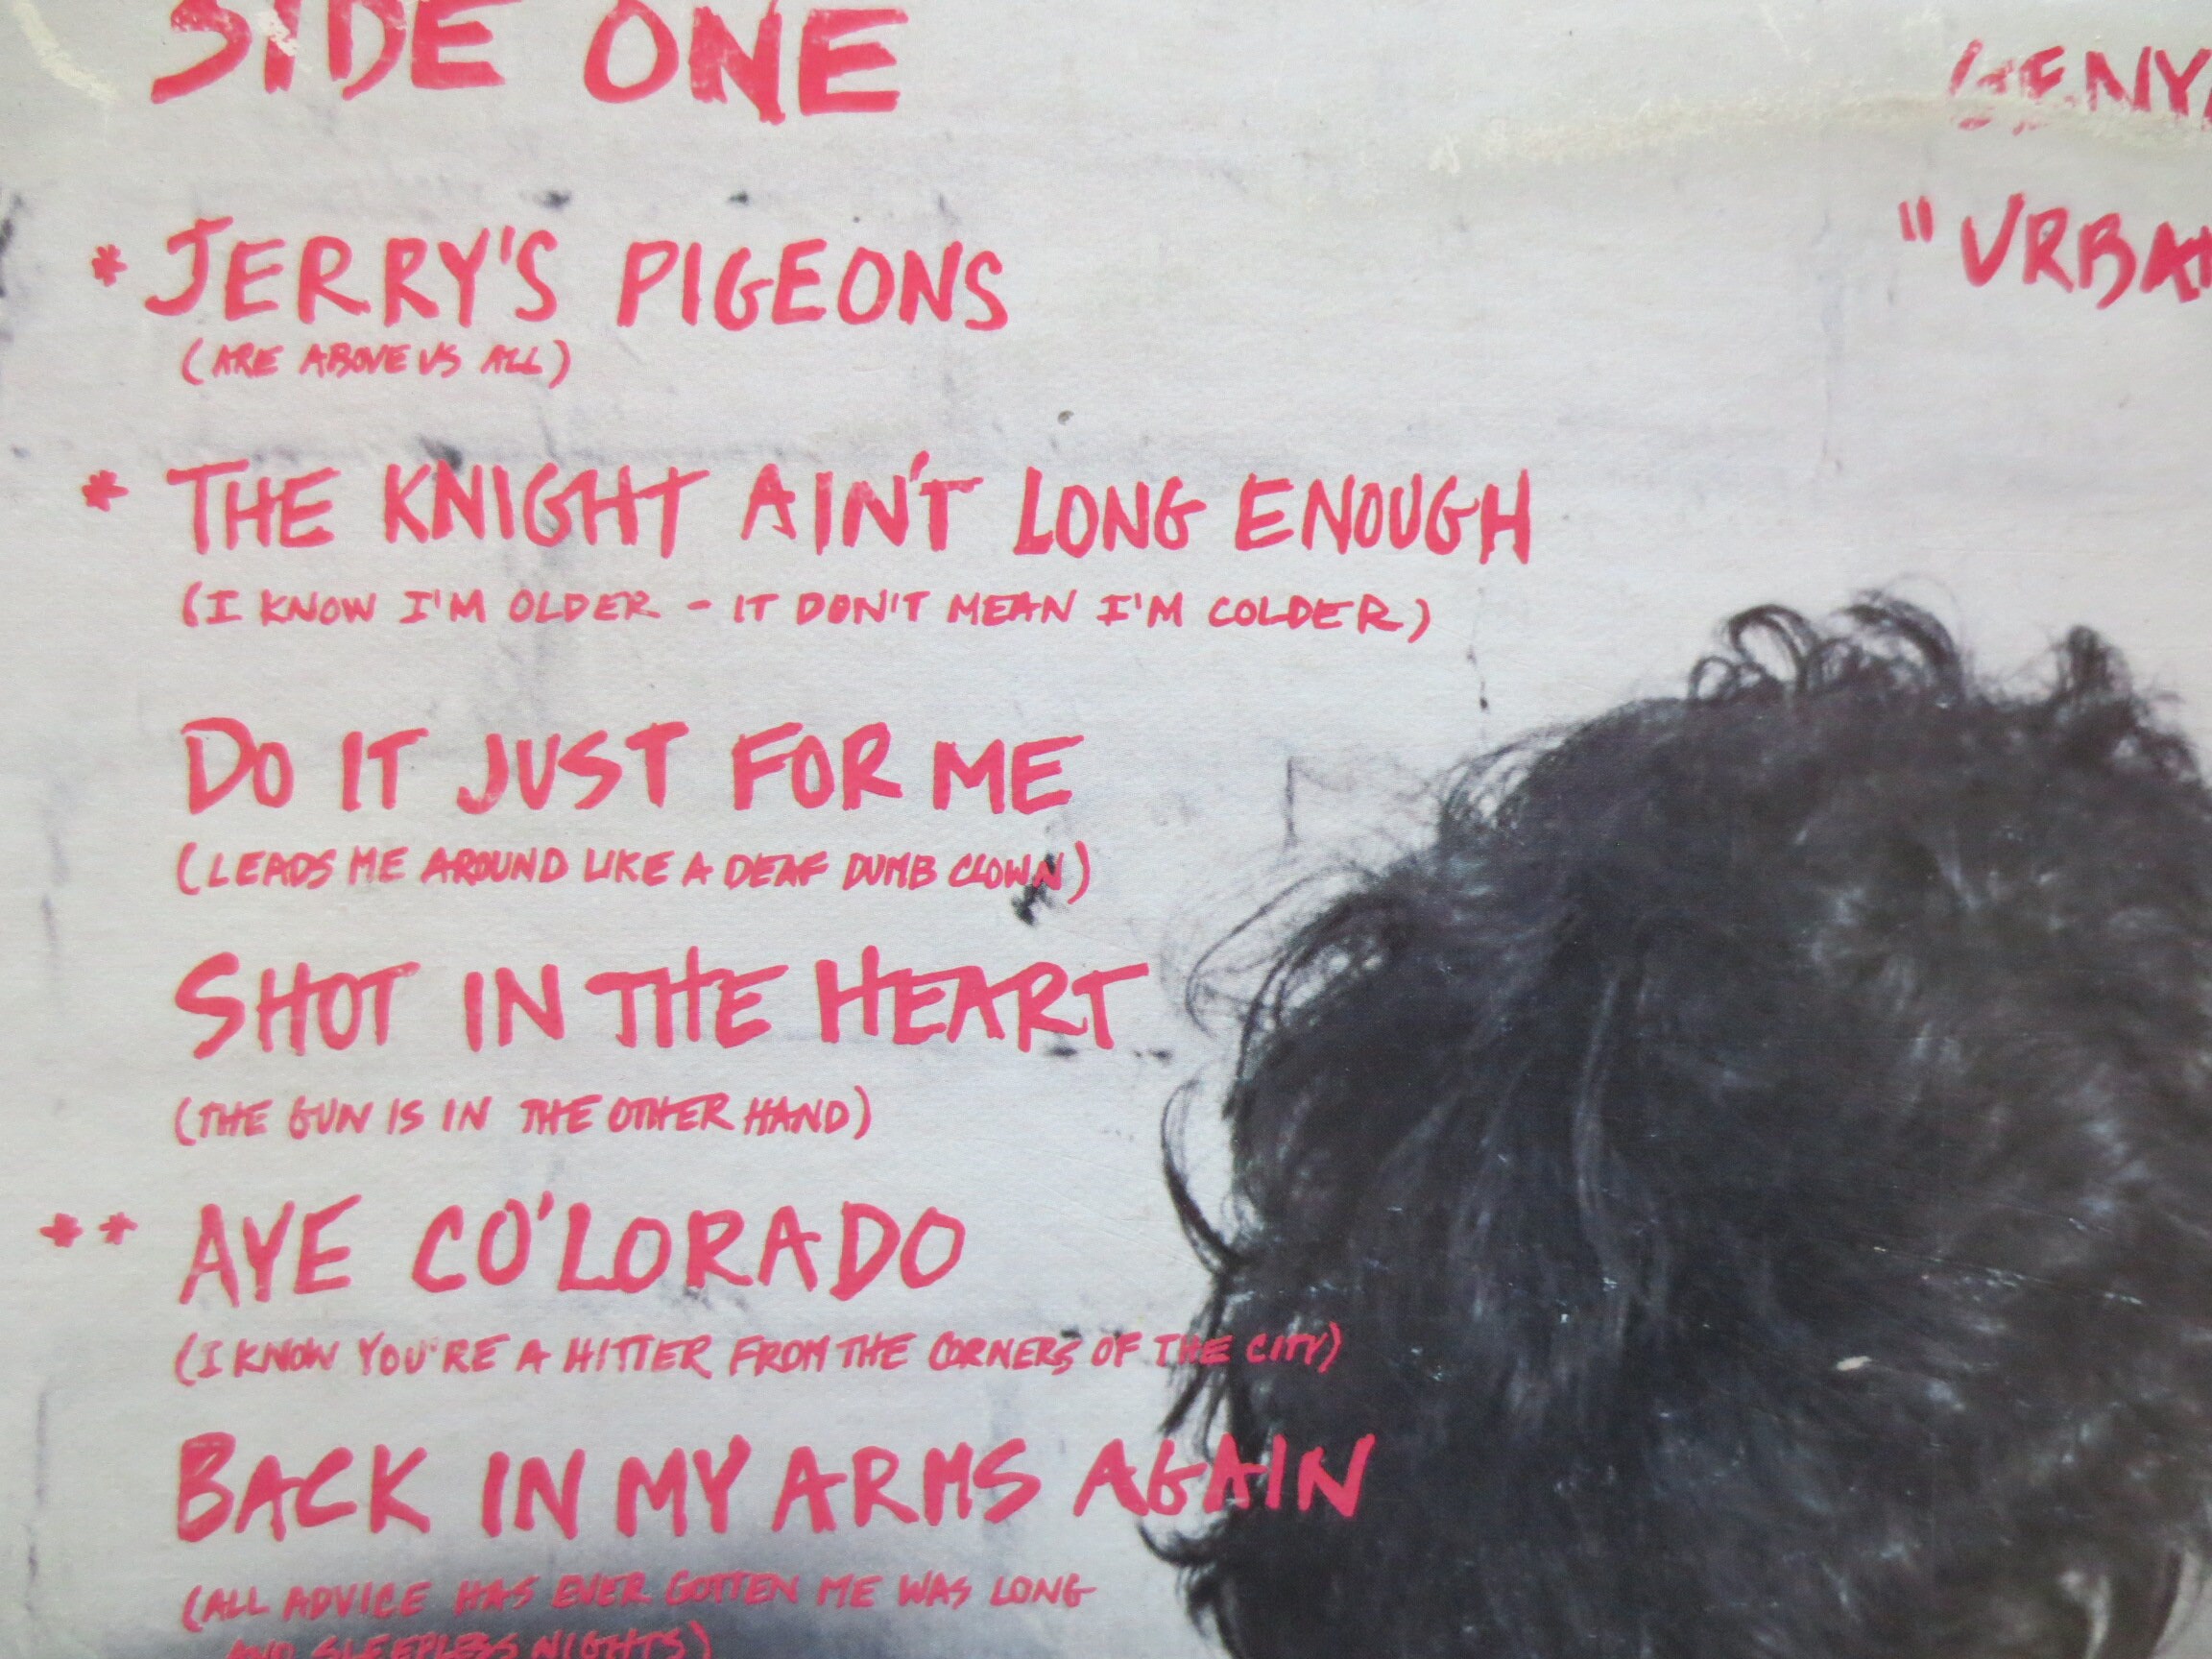 SIDE ONE
GENY
"URBAN
* JERRY'S PIGEONS
(ARE ABOVE US ALL)
* THE KNIGHT AIN'T LONG ENOUGH
(I KNOW I'M OLDER - IT DON'T MEAN I'M COLDER)
DO IT JUST FOR ME
(LEADS ME AROUND LIKE A DEAF DUMB CLOWN)
SHOT IN THE HEART
(THE GUN IS IN THE OTHER HAND)
** AYE CO'LORADO
(I KNOW YOU'RE A HITTER FROM THE CORNERS OF THE CITY)
BACK IN MY ARMS AGAIN
(ALL ADVICE HAS EVER GOTTEN ME WAS LONG
AND SLEEPLESS NIGHTS)